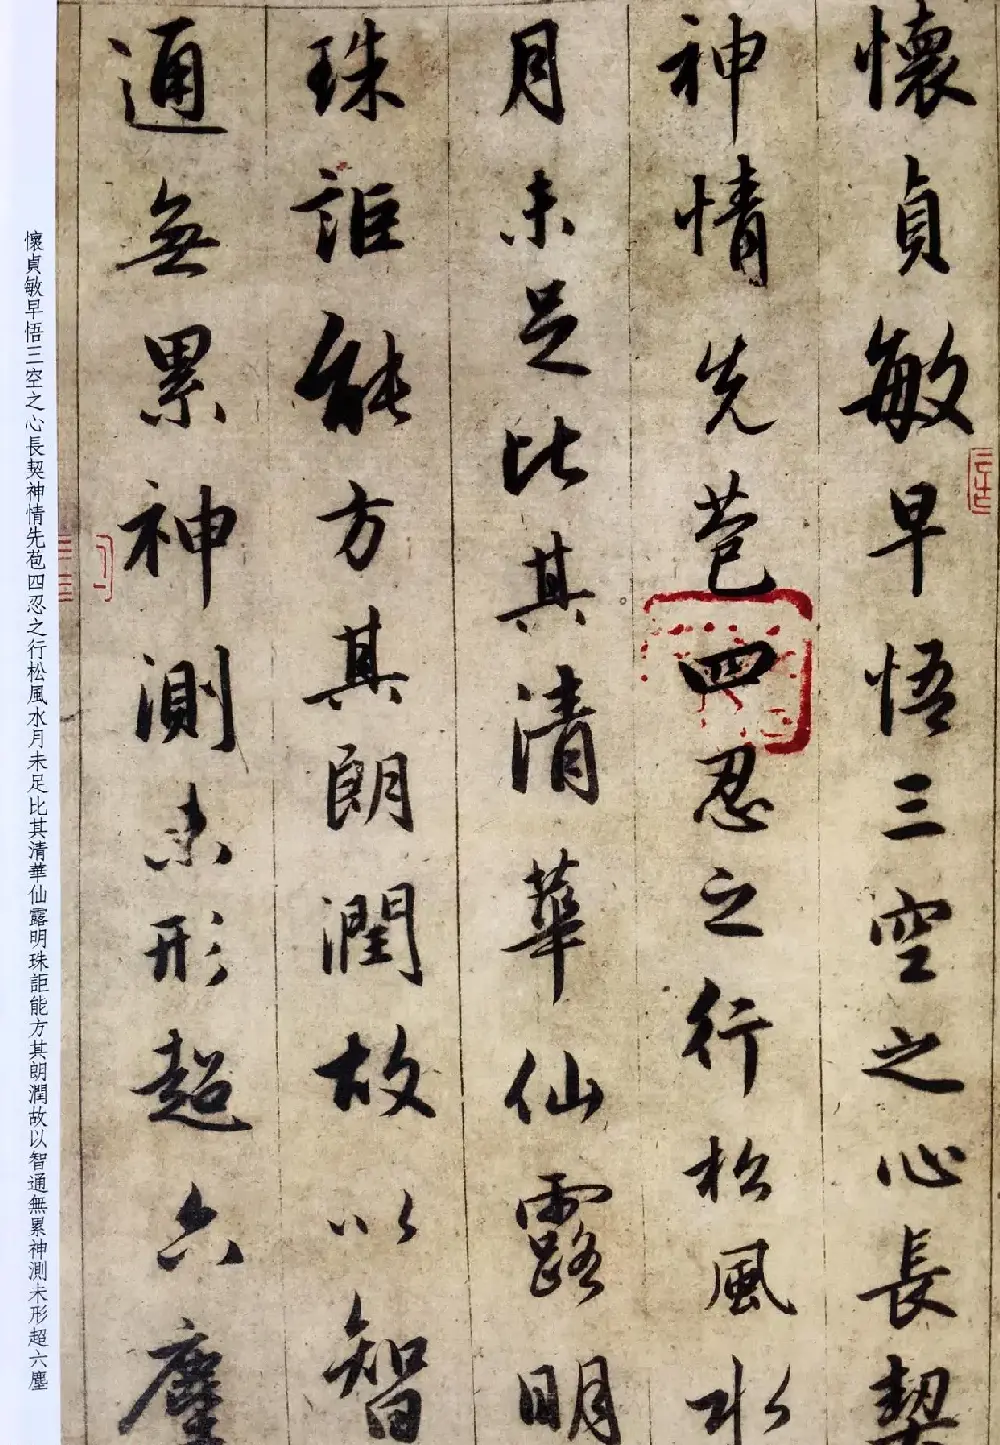 懷貞敏早悟三空之心長契
神情先苞四忍之行松風水
月未足比其清華仙露明
珠詎能方其朗潤故以智
通無累神測未形超六塵
懷貞敏早悟三空之心長契神情先苞四忍之行松風水月未足比其清華仙露明珠詎能方其朗潤故以智通無累神測未形超六塵